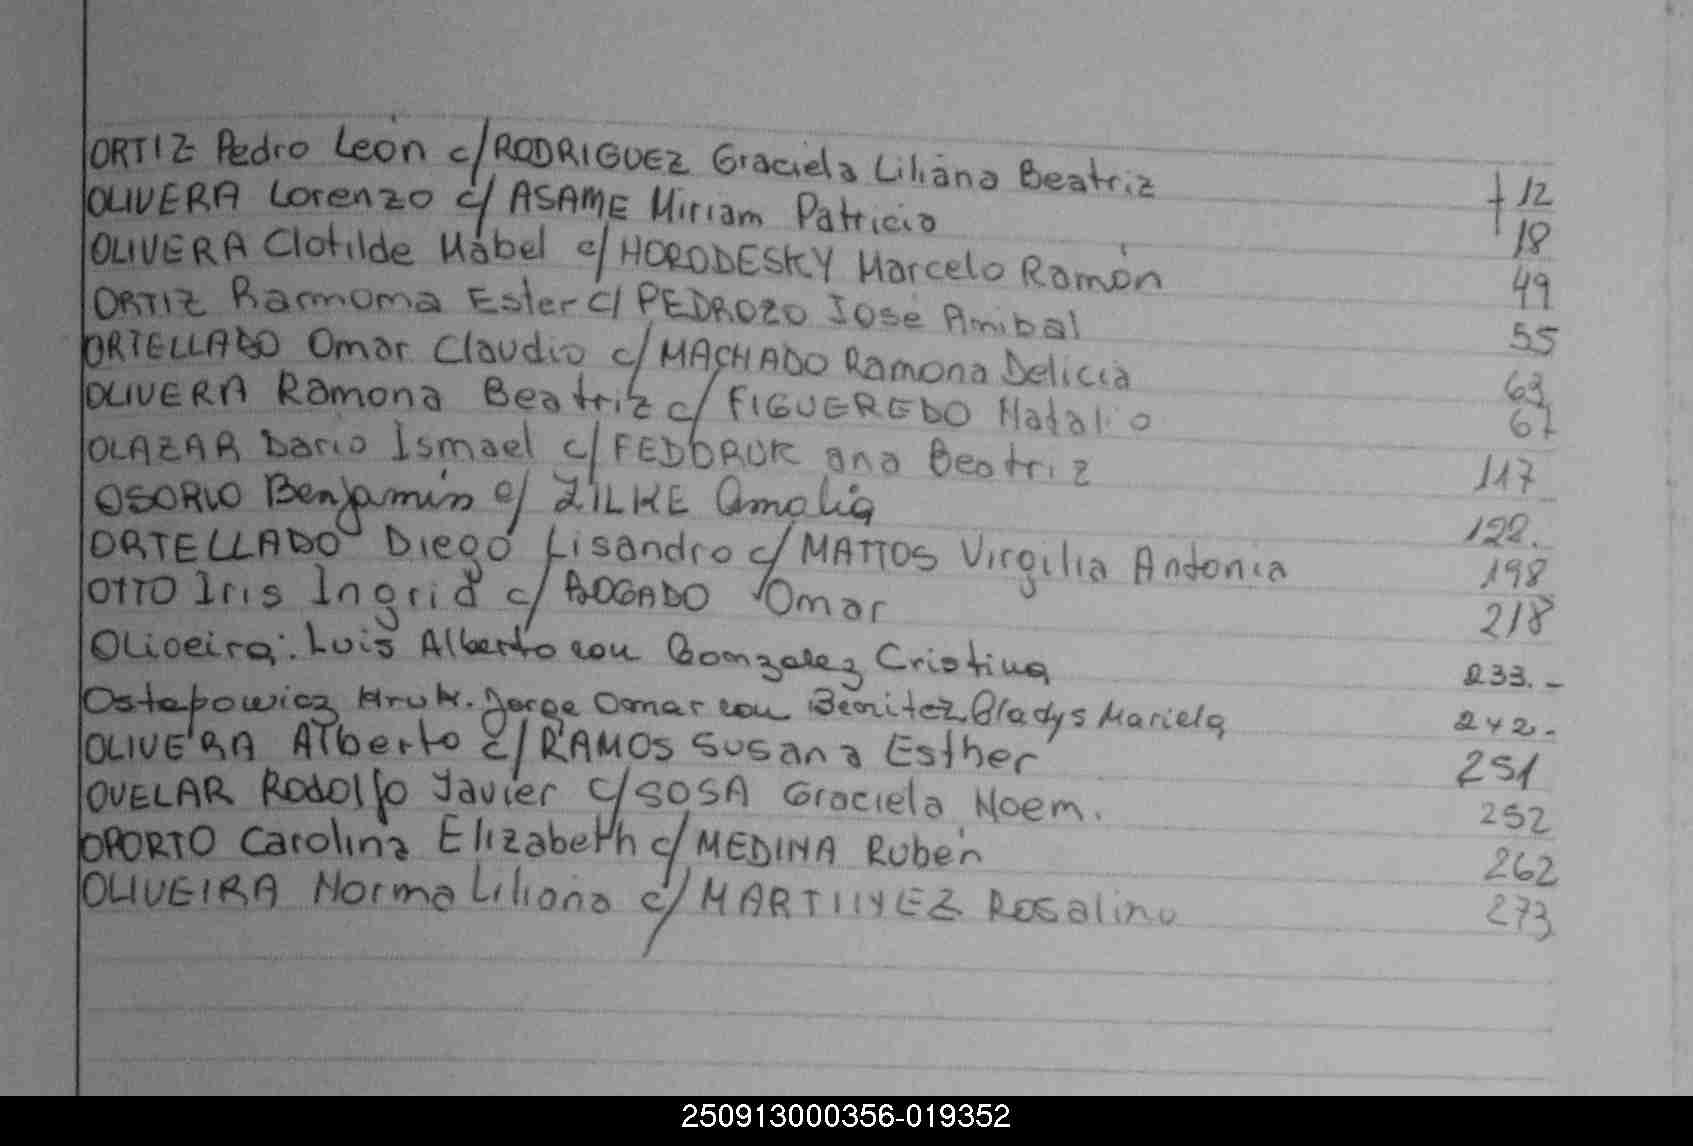 ORTIZ Pedro León c/RODRIGUEZ Graciela Liliana Beatriz 12
OLIVERA Lorenzo c/ ASAME Miriam Patricia 18
OLIVERA Clotilde Mabel c/HORODESKY Marcelo Ramón 49
ORTIZ Ramona Ester c/ PEDROZO José Anibal 55
ORTELLADO Omar Claudio c/MACHADO Ramona Delicia 63
OLIVERA Ramona Beatriz c/ FIGUEREDO Natalio 67
OLAZAR Dario Ismael c/FEDORUK ana Beatriz 117
OSORIO Benjamín c/ ZILKE Amalia 122.
ORTELLADO Diego Lisandro c/MATTOS Virgilia Antonia 198
OTTO Iris Ingrid c/ BOGADO Omar 218
Olioeira: Luis Alberto con Gonzalez Cristina 233.-
Ostapowicz Hruk. Jorge Omar con Benitez Gladys Mariela 242.-
OLIVERA Alberto c/RAMOS Susana Esther 251
OVELAR Rodolfo Javier c/SOSA Graciela Noem. 252
OPORTO Carolina Elizabeth c/MEDINA Rubén 262
OLIVEIRA Norma Liliana c/MARTINEZ Rosalino 273
250913000356-019352